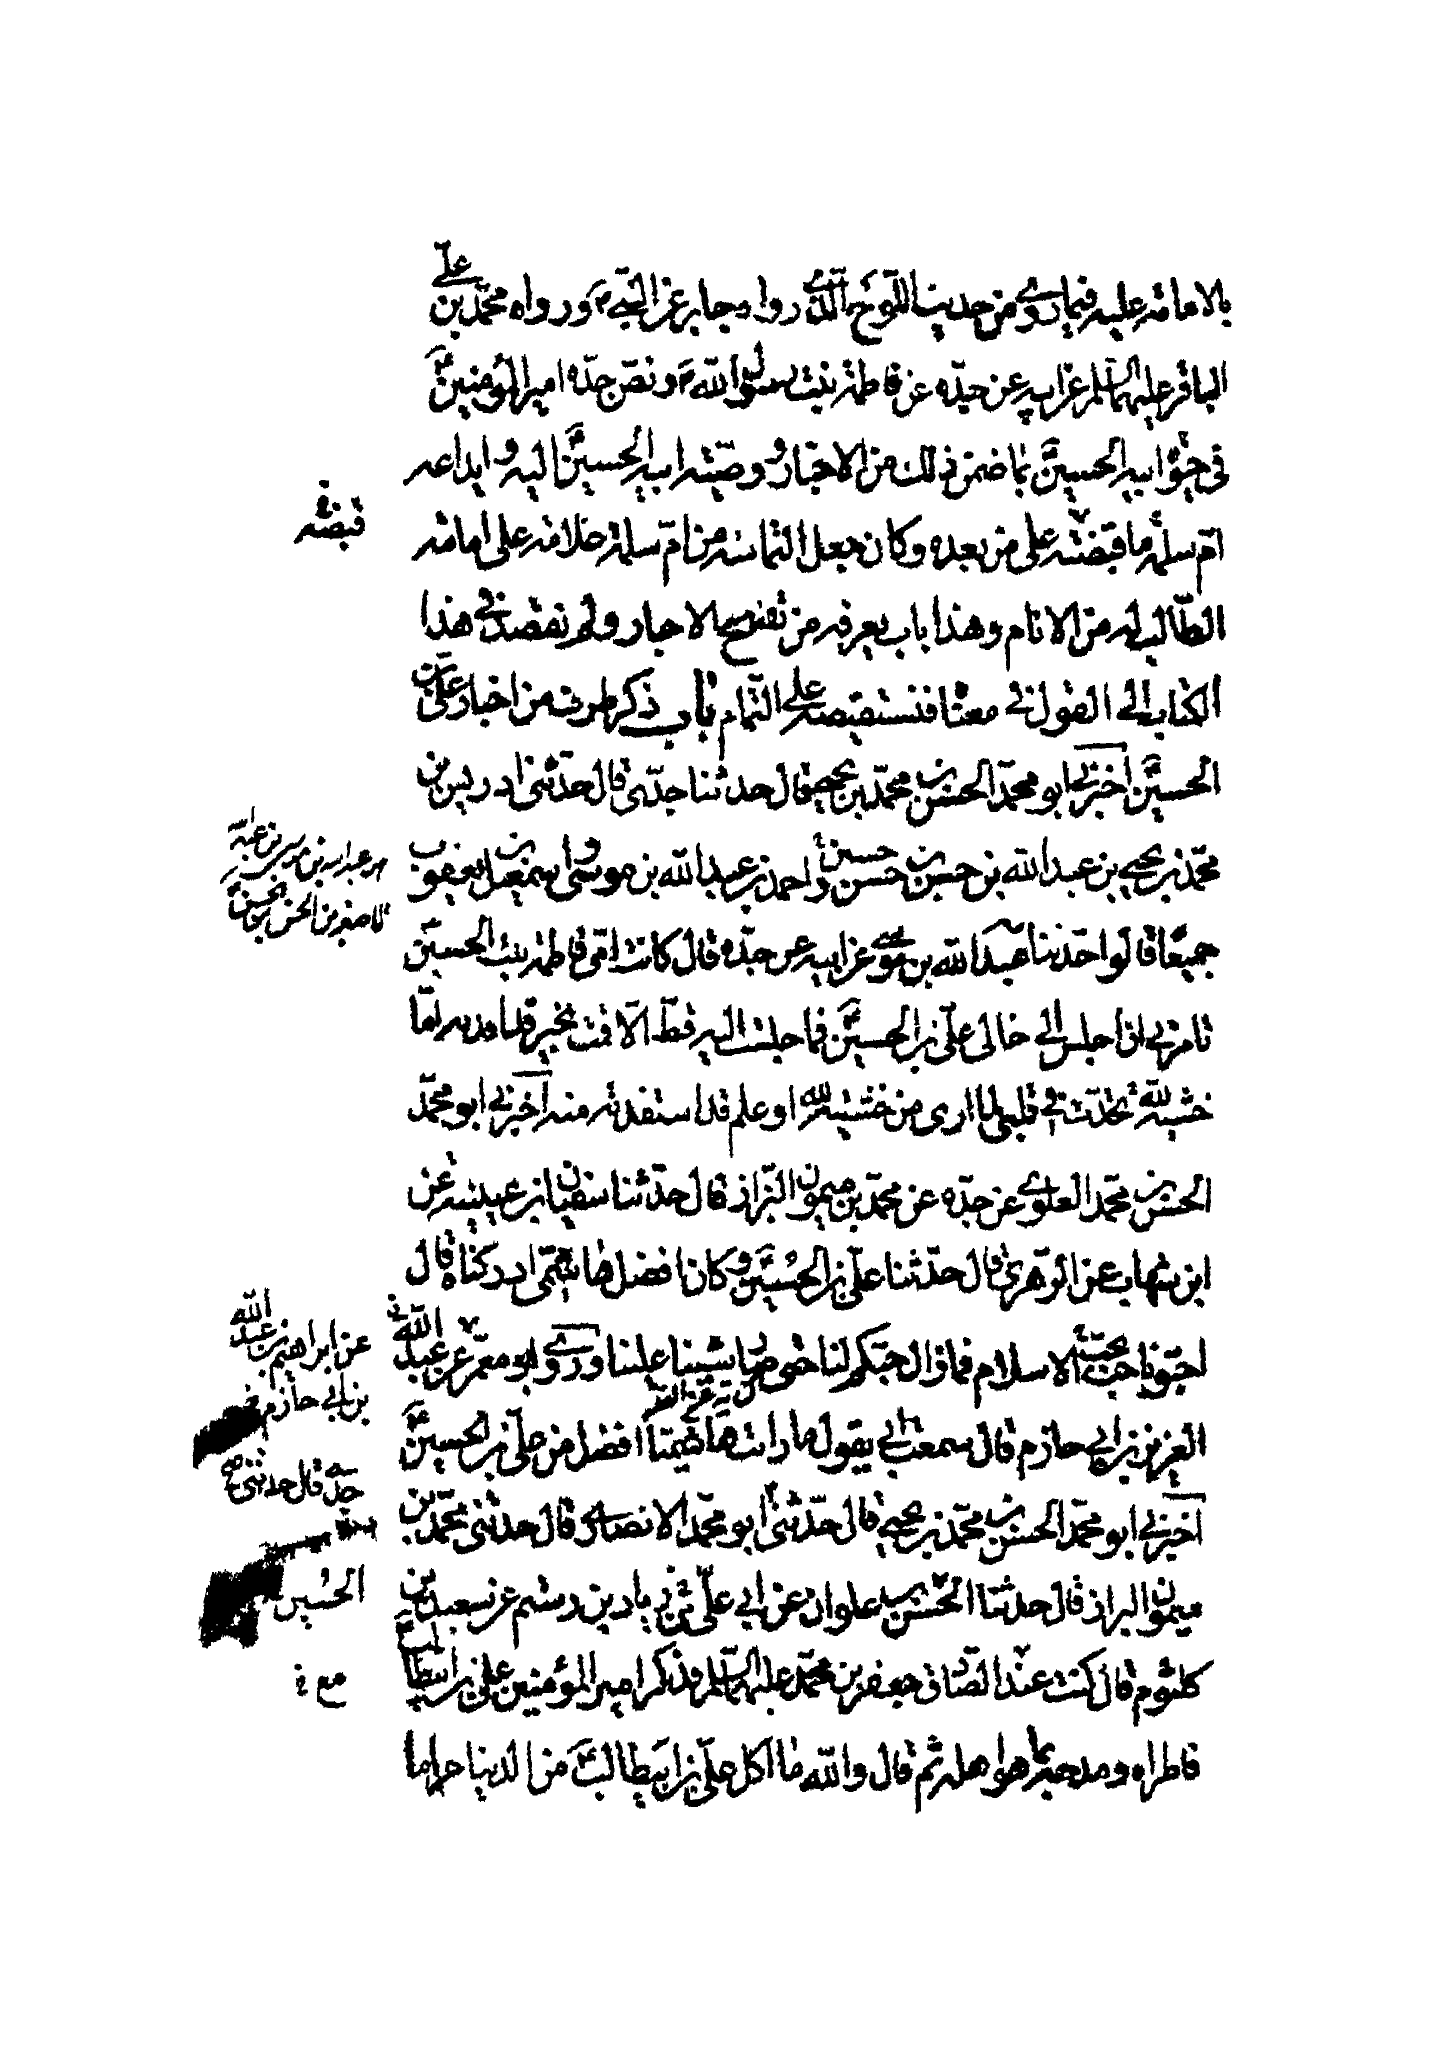 بالامامة عليه فيما روى من حديث اللوح الذي رواه جابر عن النبي ص ورواه محمد بن علي
الباقر عليهما السلم عن ابيه عن جده عن فاطمة بنت رسول الله ص ونص جده امير المؤمنين ع
في حيوة ابيه الحسين ع بما ضمن ذلك من الاخبار ووصية ابيه الحسين ع اليه وايداعه
ام سلمة ما قبضته على من بعده وكان جعل التماسه من ام سلمة علامة على امامة
قبضه
الطالب له من الانام وهذا باب يعرفه من تصفح الاخبار ولم نقصد في هذا
الكتاب الى القول في معناه فنستقصيه على التمام باب ذكر طرف من اخبار علي بن
الحسين ع اخبرني ابو محمد الحسن بن محمد بن يحيى قال حدثنا جدي قال حدثني ادريس بن
محمد بن يحيى بن عبد الله بن حسن بن حسن واحمد بن عبد الله بن موسى واسمعيل بن يعقوب
جميعا قالوا حدثنا عبد الله بن موسى عن ابيه عن جده قال كانت امي فاطمة بنت الحسين ع
تامرني ان اجلس الى خالي علي بن الحسين ع فما جلست اليه قط الا قمت بخير قد افدته اما
خشية لله تحدث في قلبي لما ارى من خشيته لله او علم قد استفدته منه اخبرني ابو محمد
الحسن بن محمد العلوي عن جده عن محمد بن ميمون البزاز قال حدثنا سفيان بن عيينه عن
ابن شهاب عن الزهري قال حدثنا علي بن الحسين ع وكان افضل هاشمي ادركناه قال
احبونا حب الاسلام فما زال حبكم لنا حتى صار شينا علينا وروى ابو معمر عن عبد
عن ابراهيم بن عبد الله
العزيز بن ابي حازم قال سمعت ابي يقول ما رايت هاشميا افضل من علي بن الحسين ع
بن ابي حازم
اخبرني ابو محمد الحسن بن محمد بن يحيى قال حدثني ابو محمد الانصاري قال حدثني محمد بن
جده قال حدثني
ميمون البزاز قال حدثنا الحسين بن علوان عن ابي علي بن زياد بن رستم عن سعيد بن
الحسين
كلثوم قال كنت عند الصادق جعفر بن محمد عليهما السلم فذكر امير المؤمنين علي بن ابيطالب ع
فاطراه ومدحه بما هو اهله ثم قال والله ما اكل علي بن ابيطالب ع من الدنيا حراما